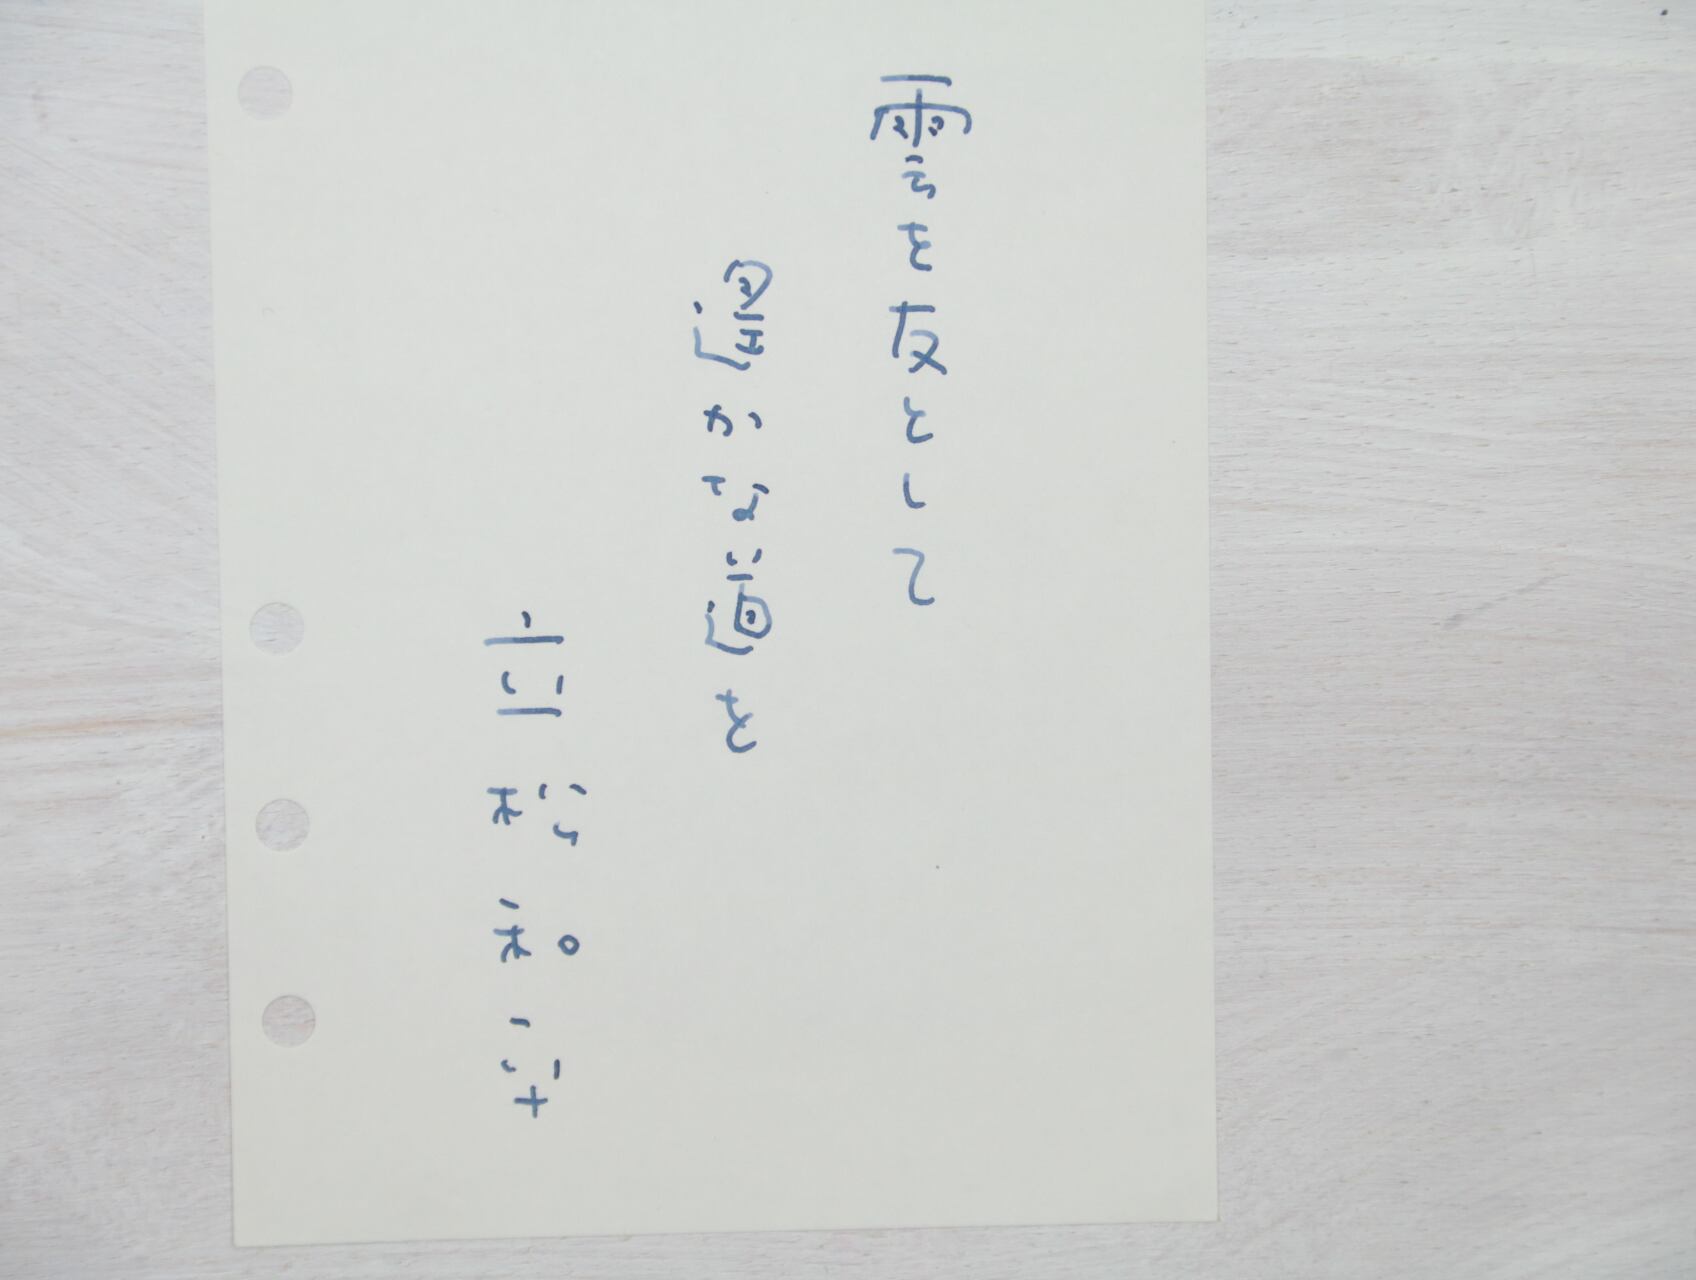 雲を友として
遥かな道を
立松和平